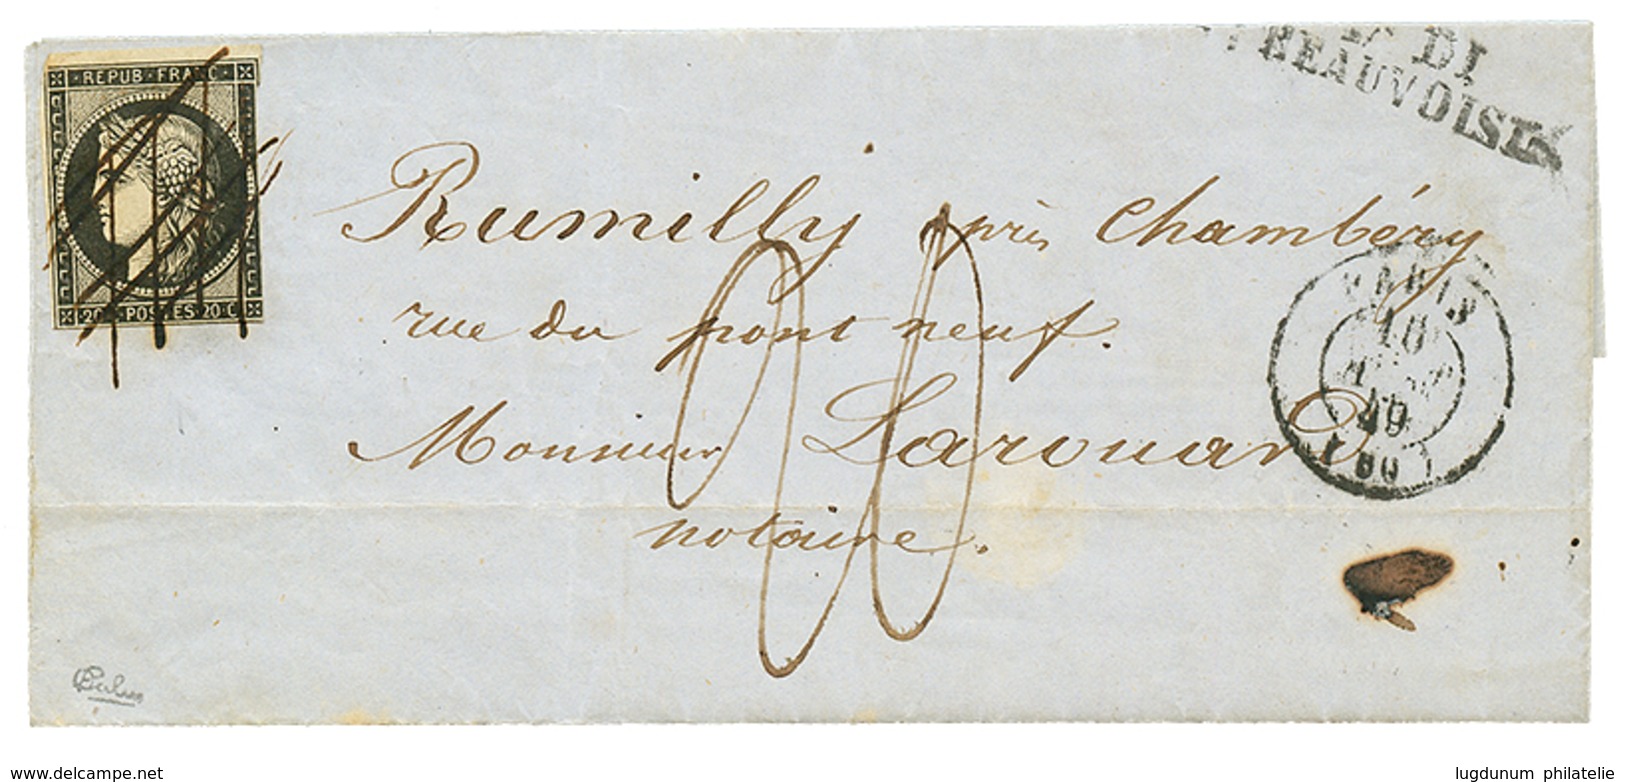 REPUB·FRANC·
20C·POSTES·20C
VA DI
P.BEAUVOISIN
Rumilly près Chambéry
rue du pont neuf.
Monsieur Larouard
notaire.
20
PARIS
18
49
(60)
Calves
delcampe.net
lugdunum philatelie